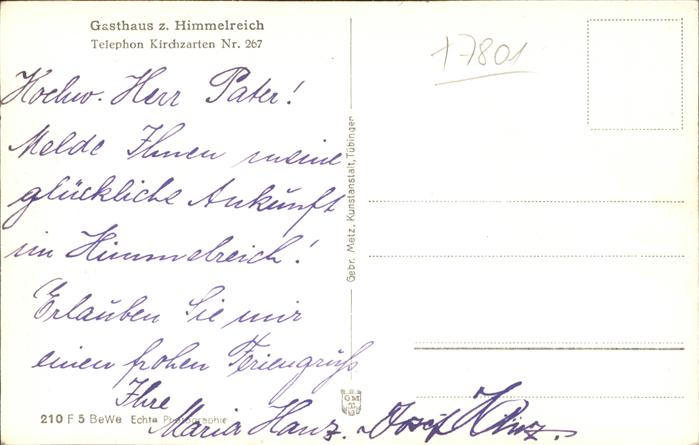 Gasthaus z. Himmelreich
Telephon Kirchzarten Nr. 267
17801
Hochw. Herr Pater!
Melde Ihnen meine
glückliche Ankunft
im Himmelreich!
Erlauben Sie mir
einen frohen Feriengruß
Ihre
Maria Hanz. Josef
Gebr. Metz, Kunstanstalt, Tübingen
GMT
210 F 5 BeWe Echte Photographie